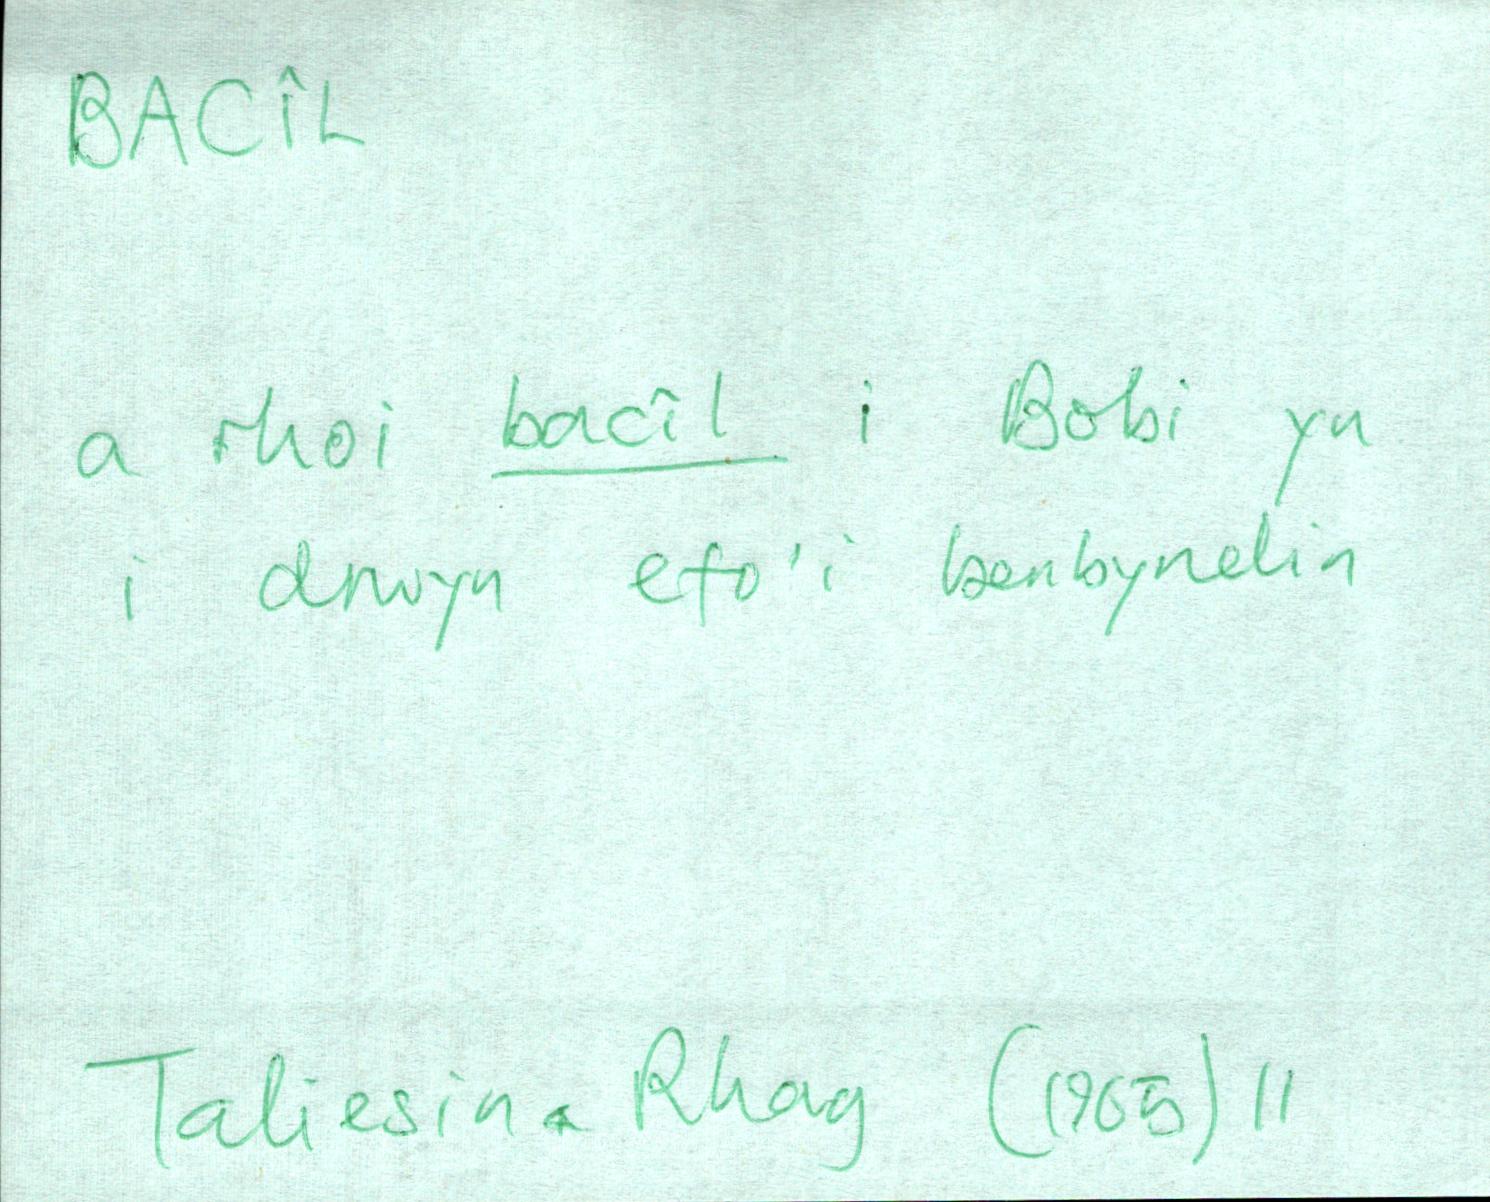 BACÎL
a rhoi bacîl i Bobi yn
i drwyn efo'i benbynelin
Taliesin. Rhag (1965) 11